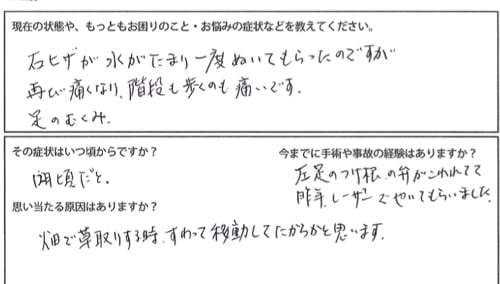 現在の状態や、もっともお困りのこと・お悩みの症状などを教えてください。
右ヒザが水がたまり一度ぬいてもらったのですが
再び痛くなり、階段も歩くのも痛いです.
足のむくみ.
その症状はいつ頃からですか？
頃だと.
今までに手術や事故の経験はありますか？
左足のつけ根の弁がこわれてて
昨年、レーザーでやいてもらいました.
思い当たる原因はありますか？
畑で草取りする時、すわって移動してたからかと思います.